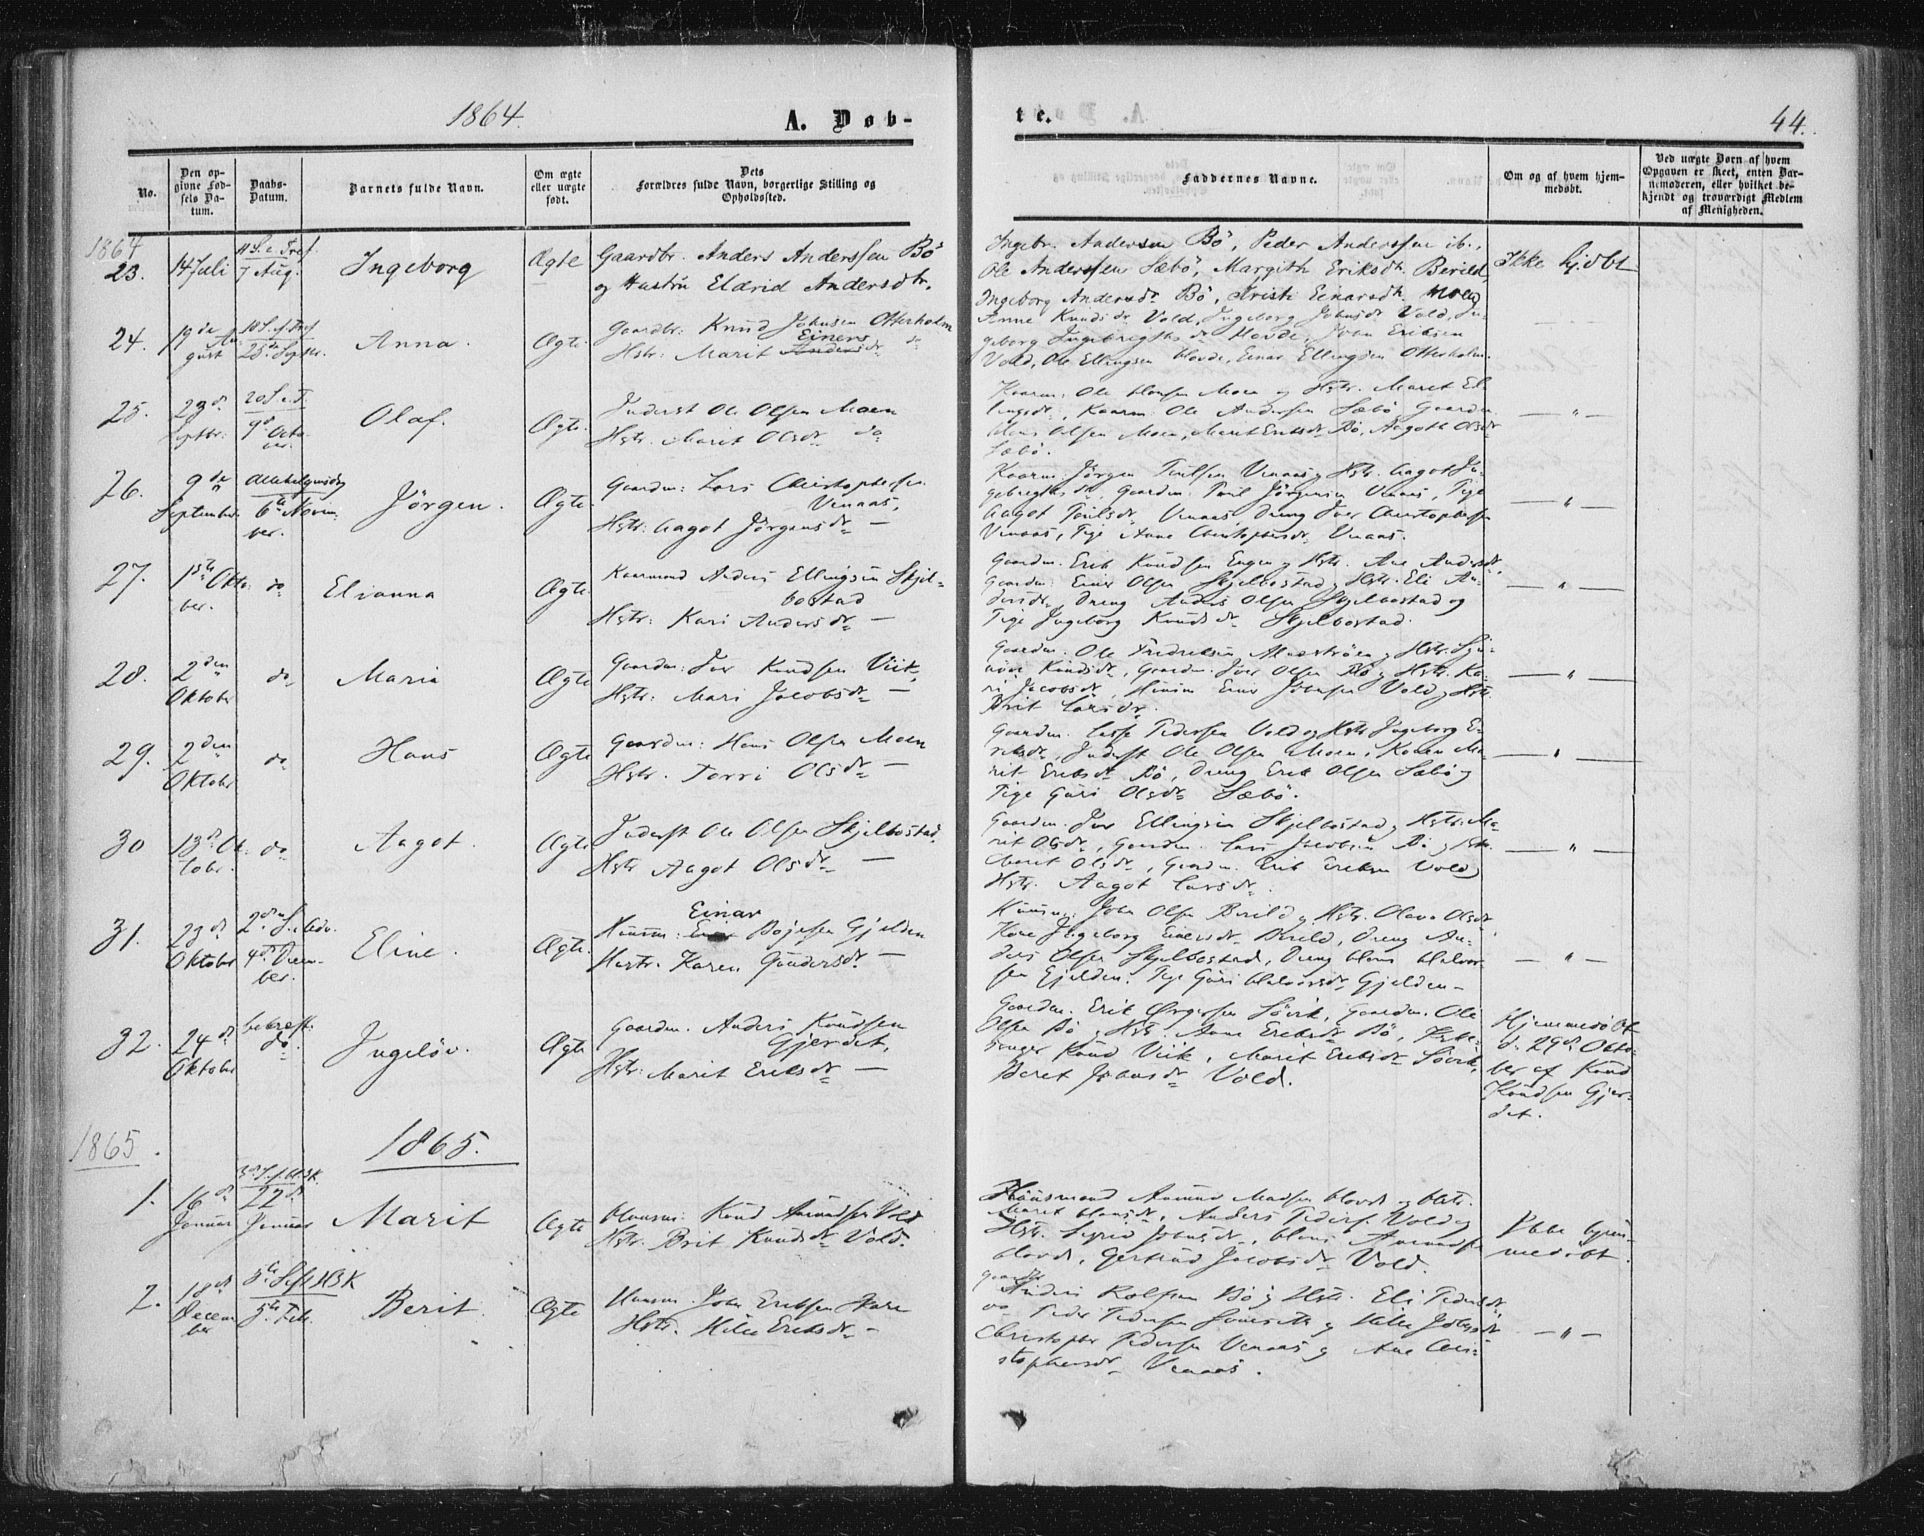 1864.
A. Døb-
te.
44.
No.
Den op-
givne Fød-
sels Da-
tum.
Daabs-
Datum.
Barnets fulde Navn.
Om ægte
eller uægte
født.
Dets
Forældres fulde Navn, borgerlige Stilling og
Opholdssted.
Faddernes Navne.
Om og af hvem hjem-
medøbt.
Ved uægte Børn af hvem
Opgaven er skeet, enten Bar-
nemoderen, eller hvilket be-
kjendt og troværdigt Medlem
af Menigheden.
1864
23.
14 Juli
11 S. e. Tref.
7 Aug.
Ingeborg
Ægte
Gaardbr. Anders Anderssen Bö
og Hustru Eldrid Andersdtr.
Ingebr. Andersen Bö, Peder Anderssen ib.,
Ole Anderssen Sæbö, Margith Eriksdtr. Berild,
Ingeborg Andersdr Bö, Kristi Einarsdtr. Moen
Ikke hjdbt
24.
19de Au-
gust
18 S. e. Tref
25de Septr.
Anna.
Ægte.
Gaardbr: Knud Johnsen Otterholm
Einers
Hstr: Marit Andersdr do
Anne Knudsdr Vold, Ingeborg Johnsdr Vold, In-
geborg Ingebrigtsdr Hovde, John Eriksen
Vold, Ole Ellingsen Hovde, Einar Ellingsen Otterholm.
25.
23d
Septbr.
20 S. e. T.
9d Octo-
ber.
Olaf.
Ægte.
Inderst Ole Olsen Moen
Hstr. Marit Olsdr do
Kaarm: Ole Hansen Moen og Hstr. Marit El-
lingsdr, Kaarm: Ole Andersen Sæbö, Gaardm.
Hans Olsen Moen, Marit Eriksdr Bö, Aagoth Olsdr
Sæbö.
— " —
26.
9de
September
Allehelgensdag
6te Novem-
ber.
Jörgen.
Ægte.
Gaardm: Lars Christophersen
Venaas,
Hstr: Aagot Jörgensdr —
Kaarm: Jörgen Poulsen Venaas og Hstr. Aagot In-
gebrigtsdr, Gaardm. Poul Jörgensen Venaas, Pige
Aagot Poulsdr Venaas, Dreng Iver Christophersen
Venaas, Pige Anne Christophersdr Venaas.
— " —
27.
1ste Okto-
ber.
do
Elianna
Ægte.
Kaarmand Anders Ellingsen Skjel-
bostad
Hstr: Kari Andersdr —
Gaardm. Erik Knudsen Engen og Hstr. Ane Andersdr,
Gaardm: Einer Olsen Skjelbostad og Hstr. Eli An-
dersdr, Dreng Anders Olsen Skjelbostad og
Pige Ingeborg Knudsdr Skjelbostad.
— " —
28.
2den
Oktober
do,
Maria
Ægte.
Gaardm: Iver Knudsen Viik,
Hstr: Mari Jacobsdr —
Gaardm. Ole Fredriksen
Knudsdr, Gaardm. Iver Olsen Bö og Hstr. Ka-
ri Jacobsdr, Einer Johnsen Vold og Hstr.
Brit Larsdr.
— " —
29.
2den
Oktober
do
Hans
Ægte
Gaardm: Hans Olsen Moen
Hstr. Torri Olsdr —
Gaardm. Lasse Pedersen Vold og Hstr Ingeborg E-
riksdr, Inderst Ole Olsen Moen, Konen Ma-
rit Eriksdr Bö, Dreng Erik Olsen Sæbö og
Pige Guri Olsdr Sæbö.
— " —
30
13d Ok-
tober.
do
Aagot.
Ægte.
Inderst Ole Olsen Skjelbostad.
Hstr Aagot Olsdr —
Gaardm. Iver Ellingsen Skjelbostad og Hstr. Ma-
rit Olsdr, Gaardm. Lars Jacobsen Bö og Hstr.
Marit Olsdr, Gaardm. Erik Eriksen Vold og
Hstr. Aagot Larsdr.
— " —
31.
23d
Oktober
2den S. i Adv.
4d Decem-
ber.
Eline.
Ægte.
Einar
Huusm: Bojesen Gjelden
Hustr. Karen Gundersdr —
Huusm: John Olsen Berild og Hstr. Olava Olsdr
Kone Ingeborg Einersdr Berild, Dreng An-
ders Olsen Skjelbostad, Dreng Hans Halvor-
sen Gjelden. Pige Guri Halvorsdr Gjelden —
— " —
32.
24d
Oktober
bekræft.
do.
Ingelöv.
Ægte
Gaardm. Anders Knudsen
Gjerdet,
Hstr: Marit Eriksdr —
Gaardm. Erik Sövik, Gaardm. Ole
Olsen Bö og Hstr. Anne Eriksdr Bö, Kirke-
sanger Knud Viik, Marit Eriksdr Sövik,
Beret Johnsdr Vold.
Hjemmedöbt
d. 29d Okto-
ber af Knud
Knudsen Gjer-
det.
1865.
1865.
1.
16d
Januar
3d S. f. H3K
22d
Januar
Marit
Ægte
Huusm: Knud Amundsen Vold
Hstr. Brit Knudsdr Vold.
Huusmand Amund Madsen Hovde og Hstr.
Marit Hansdr, Anders Peders. Vold og
Hstr. Sigrid Johnsdr, Hans Amundsen
Hovde, Gertrud Jacobsdr Vold.
Ikke hjem-
medöbt.
2.
18d
Decem-
ber
5te S. e. H3K
5te Feb.
Berit.
Ægte
Huusm. John Eriksen
Hstr. Eriksdr —
Gaardbr
Anders Bö og Hstr. Eli Pedersdr
Peder Pedersen og
Christopher Pedersen Venaas og Ane Chri-
stophersdr Venaas.
— " —